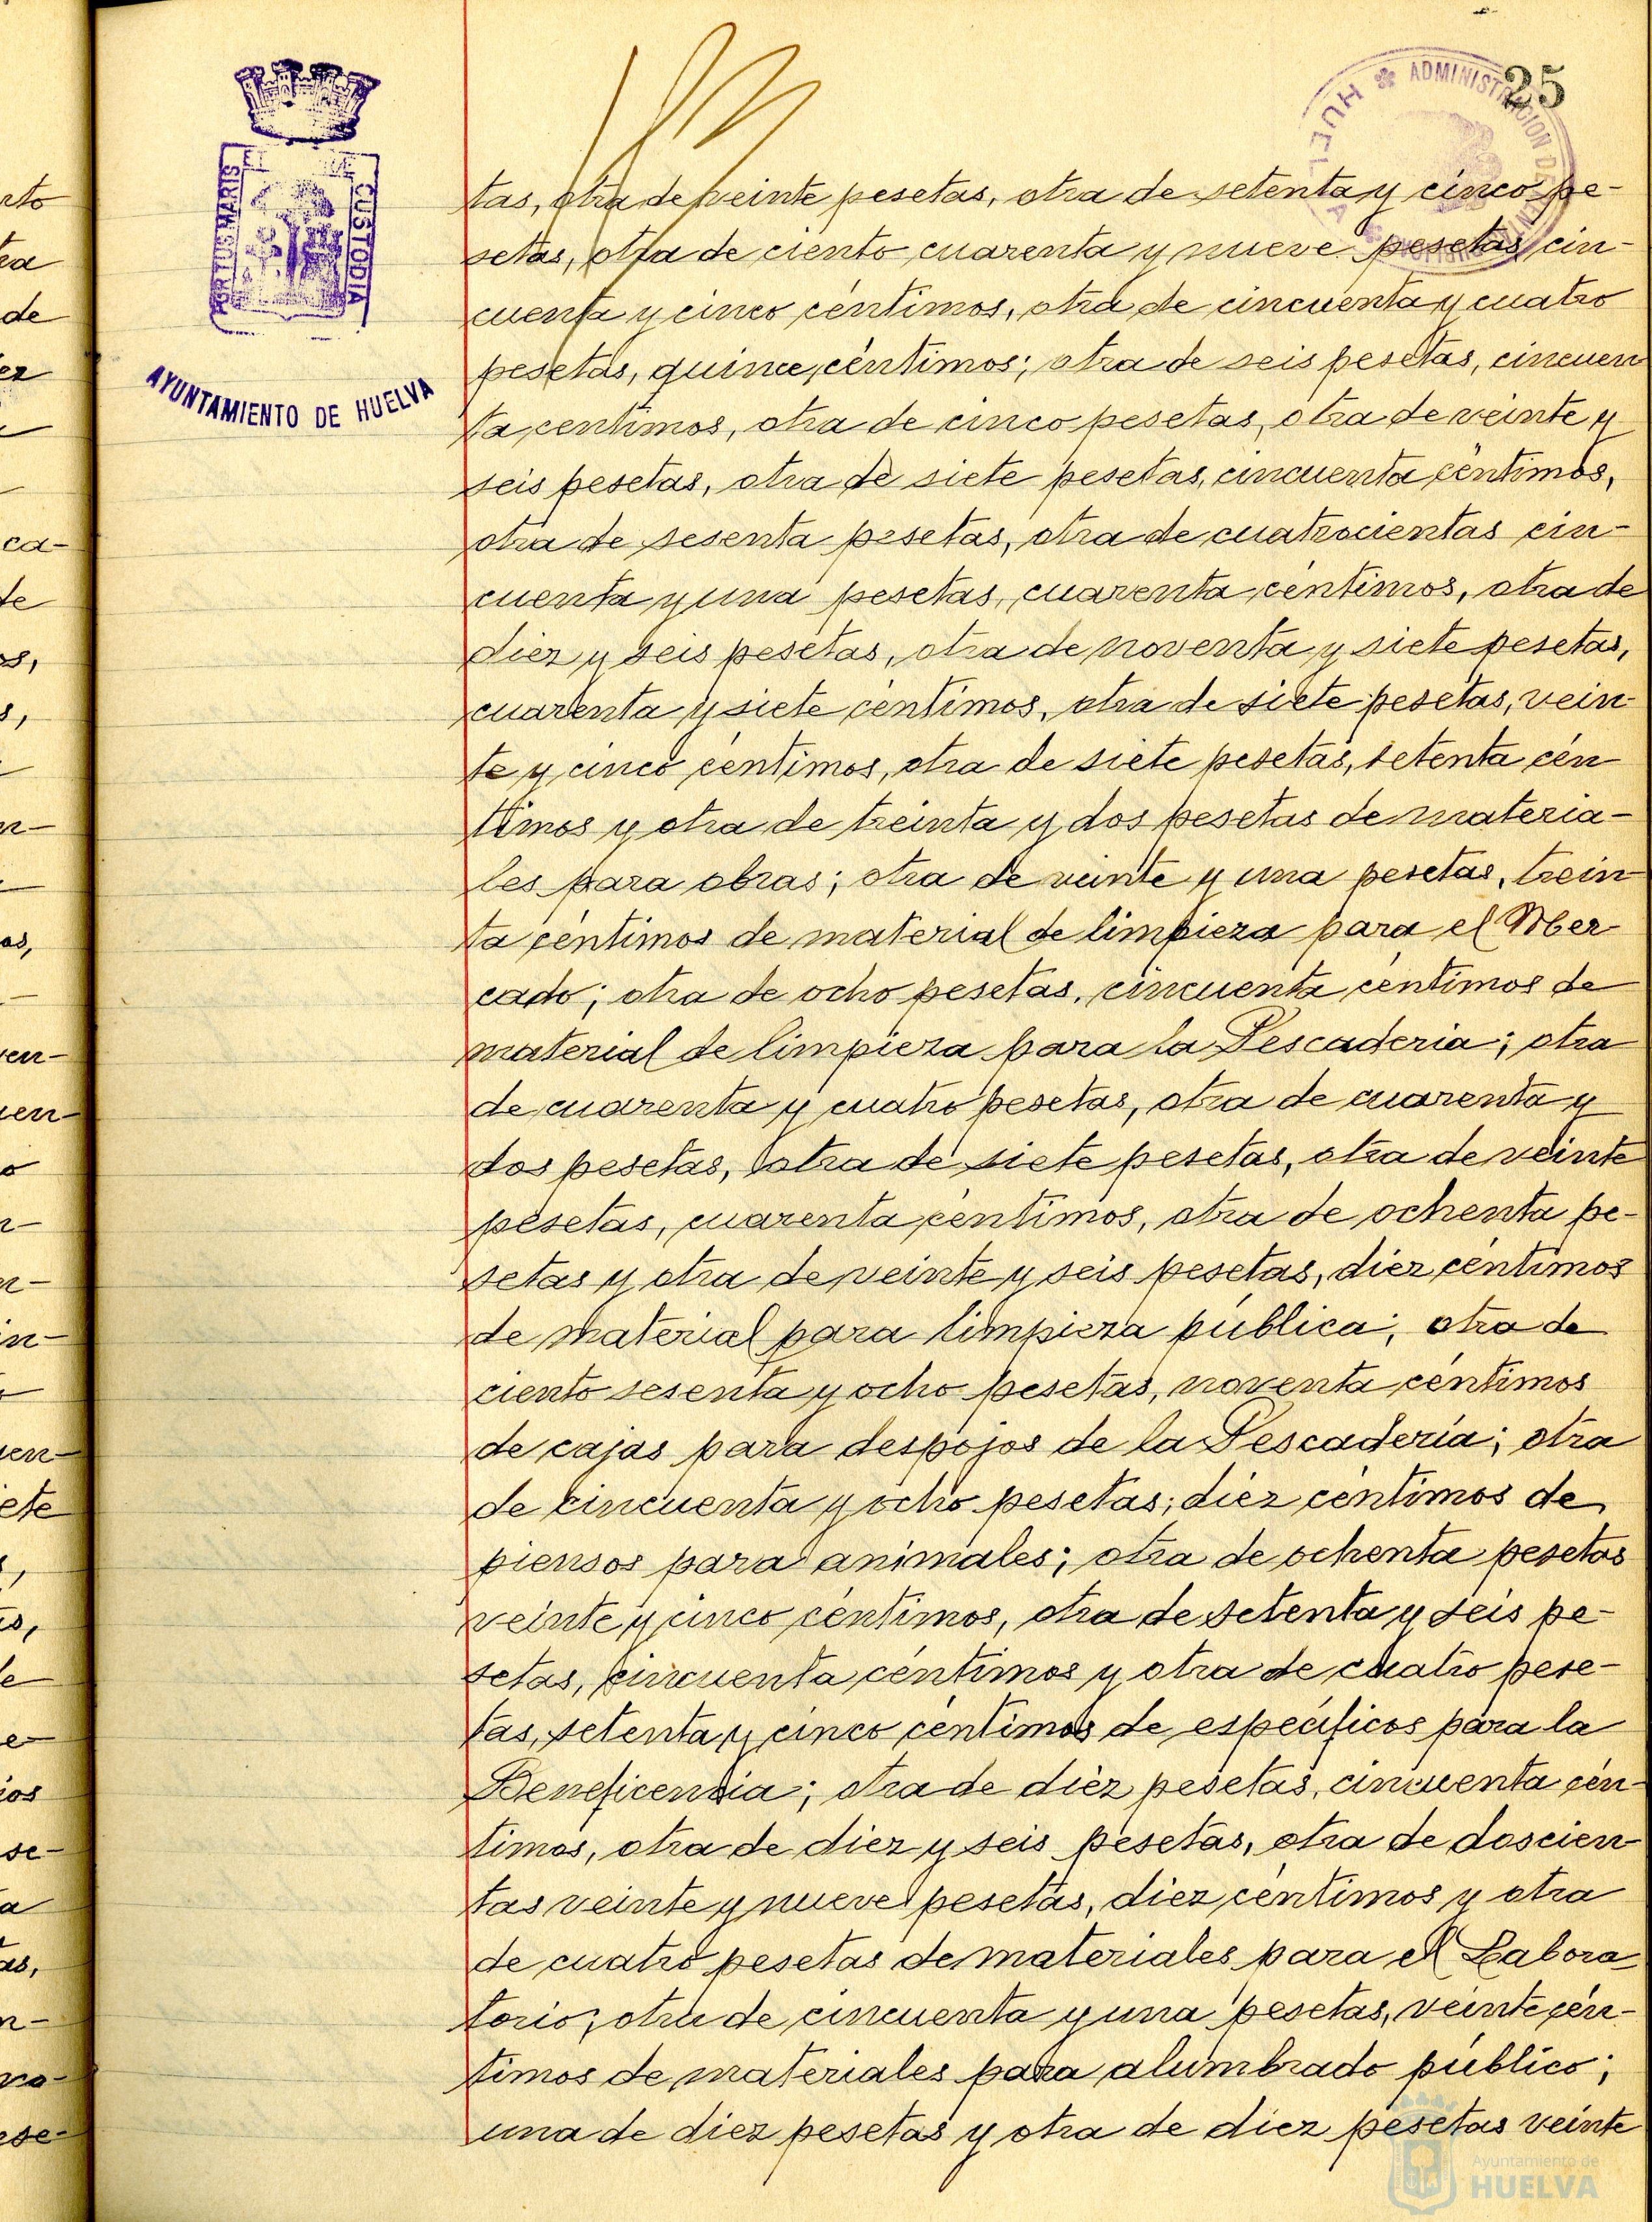 25
ADMINISTRACION DE
HUELVA
PORTUS MARIS
ET
CUSTODIA
AYUNTAMIENTO DE HUELVA
tas, otra de veinte pesetas, otra de setenta y cinco pe-
setas, otra de ciento cuarenta y nueve pesetas cin-
cuenta y cinco céntimos, otra de cincuenta y cuatro
pesetas, quince céntimos; otra de seis pesetas, cincuen
ta centimos, otra de cinco pesetas, otra de veinte y
seis pesetas, otra de siete pesetas, cincuenta centimos,
otra de sesenta pesetas, otra de cuatrocientas cin-
cuenta y una pesetas, cuarenta centimos, otra de
diez y seis pesetas, otra de noventa y siete pesetas,
cuarenta y siete centimos, otra de siete pesetas, vein-
te y cinco centimos, otra de siete pesetas, setenta cén
timos y otra de treinta y dos pesetas de materia-
les para obras; otra de veinte y una pesetas, trein
ta céntimos de material de limpieza para el Mer
cado; otra de ocho pesetas, cincuenta centimos de
material de limpieza para la Pescaderia; otra
de cuarenta y cuatro pesetas, otra de cuarenta y
dos pesetas, otra de siete pesetas, otra de veinte
pesetas, cuarenta centimos, otra de ochenta pe-
setas y otra de veinte y seis pesetas, diez centimos
de material para limpieza pública; otra de
ciento sesenta y ocho pesetas, noventa centimos
de cajas para despojos de la Pescadería; otra
de cincuenta y ocho pesetas; diez centimos de
piensos para animales; otra de ochenta pesetas
veinte y cinco céntimos, otra de setenta y seis pe-
setas, cincuenta céntimos y otra de cuatro pese-
tas, setenta y cinco centimos de específicos para la
Beneficencia; otra de diez pesetas, cincuenta cén-
timos, otra de diez y seis pesetas, otra de doscien-
tas veinte y nueve pesetas, diez centimos y otra
de cuatro pesetas de materiales para el Labora-
torio; otra de cincuenta y una pesetas, veinte cén-
timos de materiales para alumbrado público;
una de diez pesetas y otra de diez pesetas veinte
Ayuntamiento de
HUELVA